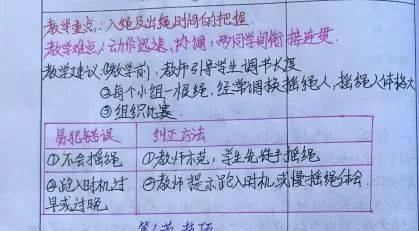 教学重点：入绳及出绳时间的把握.
教学难点：动作迅速、协调，两同学间衔接连贯.
教学建议：①教学前，教师引导学生调书长度
②每个小组一根绳，经常调换摇绳人，摇绳人体格大
③组织比赛
易犯错误 纠正方法
①不会摇绳 ①教师示范，学生先徒手摇绳
②跑入时机过 ②教师提示跑入时机或慢摇绳体会.
早或过晚